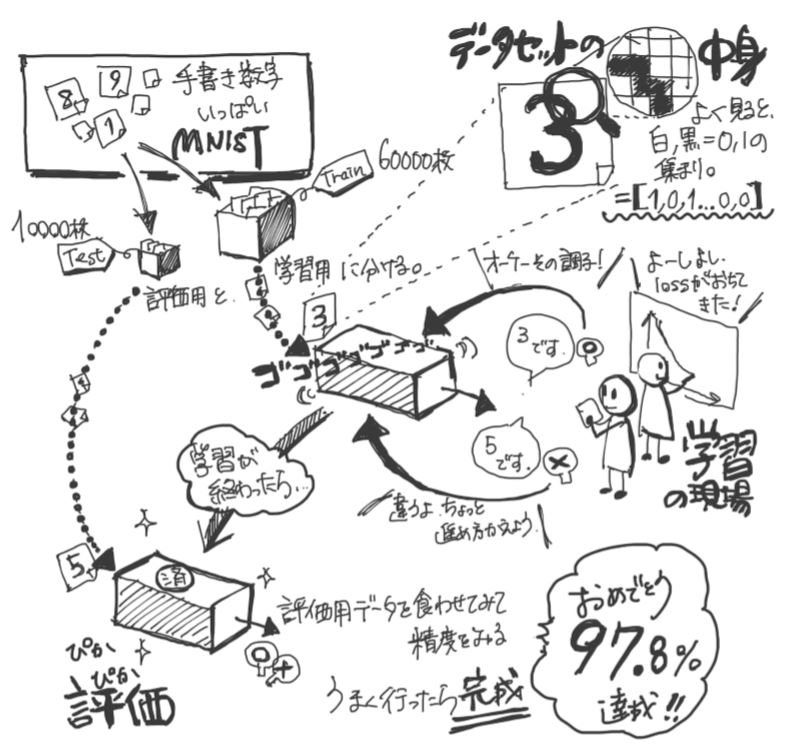 手書き数字
いっぱい
MNIST
8
9
1
データセットの中身
3
よく見ると、
白,黒=0,1の
集まり。
=[1,0,1...0,0]
60000枚
Train
10000枚
Test
評価用と
学習用に分ける。
3
ゴゴゴゴゴゴゴ
オーケーその調子!
よーしよし
lossがおちて
きた!
3
です.
5
です.
違うよ.ちょっと
進め方かえよう.
学習
の現場
学習が
終わったら...
5
済
ぴか
ぴか
評価
評価用データを食わせてみて
精度をみる
うまく行ったら完成
おめでとう
97.8%
達成!!